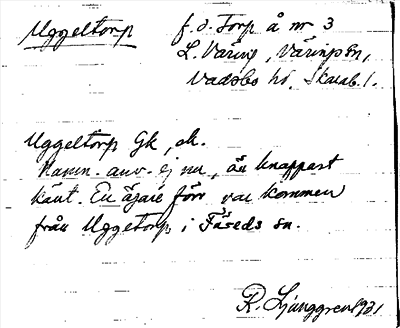 Uggeltorp
f.d. Torp å nr 3
L. Väring, Värings sn,
Vadsbo hd, Skarab. l.
Uggeltorp Gk, ch.
Namn. anv. ej nu, är knappast
känt. En ägare förr var kommen
från Uggetorp i Fåreds sn.
R. Ljunggren 1931